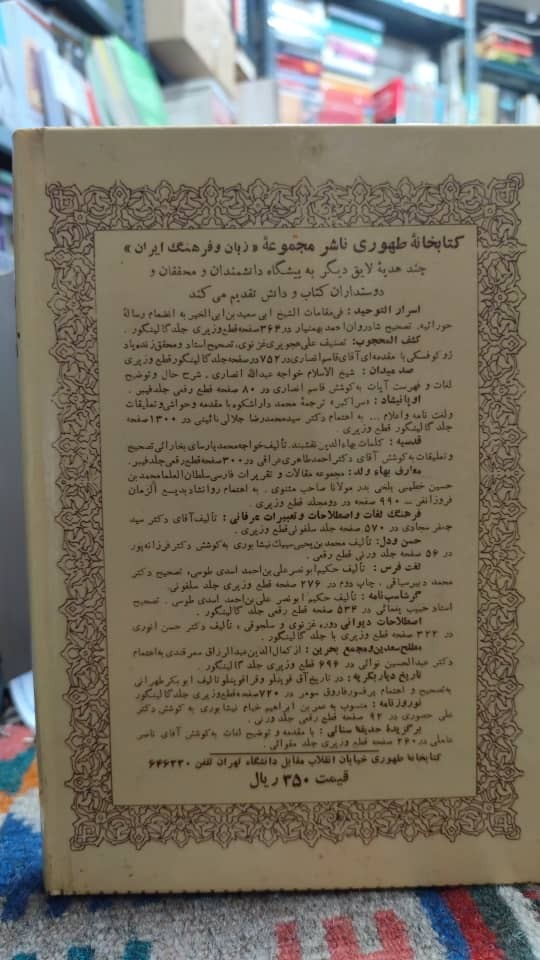 کتابخانهٔ طهوری ناشر مجموعهٔ «زبان و فرهنگ ایران»
چند هدیهٔ لایق دیگر به پیشگاه دانشمندان و محققان و
دوستداران کتاب و دانش تقدیم می کند
اسرار التوحید : فی مقامات الشیخ ابی سعید بن ابی الخیر به انضمام رسالهٔ
حورائیه. تصحیح شادروان احمد بهمنیار در ۳۶۴ صفحه قطع وزیری جلد گالینگور .
کشف المحجوب: تصنیف علی هجویری غزنوی، تصحیح استاد و محقق زنده یاد
ژوکوفسکی با مقدمه ای آقای قاسم انصاری در ۷۵۲ صفحه جلد گالینگور قطع وزیری
صد میدان : شیخ الاسلام خواجه عبدالله انصاری . شرح حال و توضیح
لغات و فهرست آیات به کوشش قاسم انصاری در ۸۰ صفحه قطع رقعی جلد فیبر .
اوپانیشاد : «سراکبر» ترجمهٔ محمد داراشکوه با مقدمه و حواشی و تعلیقات
و لغت نامه و اعلام ... به اهتمام دکتر سیدمحمدرضا جلالی نائینی در ۱۳۰۰ صفحه
جلد گالینگور قطع وزیری .
قدسیه : کلمات بهاءالدین نقشبند. تألیف خواجه محمد پارسای بخارائی تصحیح
و تعلیقات به کوشش آقای دکتر احمد طاهری عراقی در ۳۰۰ صفحه قطع رقعی جلد فیبر.
معارف بهاء ولد: مجموعه مقالات و تقریرات فارسی سلطان العلما محمد بن
حسین خطیبی بلخی پدر مولانا صاحب مثنوی . به اهتمام روانشاد بدیع الزمان
فروزانفر - ۹۹۰ صفحه در دو مجلد قطع وزیری .
فرهنگ لغات و اصطلاحات و تعبیرات عرفانی : تألیف آقای دکتر سید
جعفر سجادی در ۵۷۰ صفحه جلد سلفونی قطع وزیری .
حسن و دل: تألیف محمد بن یحیی سیبک نیشابوری به کوشش دکتر فرزانه پور
در ۵۶ صفحه جلد ورنی قطع رقعی .
لغت فرس : تألیف حکیم ابونصر علی بن احمد اسدی طوسی، تصحیح دکتر
محمد دبیرسیاقی . چاپ دوم در ۲۷۶ صفحه قطع وزیری جلد سلفونی .
گرشاسب نامه : تألیف حکیم ابونصر علی بن احمد اسدی طوسی . تصحیح
استاد حبیب یغمائی در ۵۳۴ صفحه قطع رقعی جلد گالینگور .
اصطلاحات دیوانی دوره غزنوی و سلجوقی ، تألیف دکتر حسن انوری
در ۳۲۲ صفحه قطع وزیری با جلد گالینگور .
مطلع سعدین و مجمع بحرین : از کمال الدین عبدالرزاق سمرقندی به اهتمام
دکتر عبدالحسین نوائی در ۶۹۶ قطع وزیری جلد گالینگور .
تاریخ دیار بکریه : در تاریخ آق قوینلو و قراقوینلو تألیف ابوبکر طهرانی
به تصحیح و اهتمام پرفسور فاروق سومر در ۷۲۰ صفحه قطع وزیری جلد گالینگور
نوروزنامه : منسوب به عمر بن ابراهیم خیام نیشابوری به کوشش دکتر
علی حصوری در ۹۲ صفحه قطع رقعی جلد ورنی .
برگزیدهٔ حدیقهٔ سنائی : با مقدمه و توضیح لغات به کوشش آقای ناصر
عاملی در ۲۴۰ صفحه قطع وزیری جلد مقوائی .
کتابخانهٔ طهوری خیابان انقلاب مقابل دانشگاه تهران تلفن ۶۴۶۳۳۰
قیمت ۳۵۰ ریال